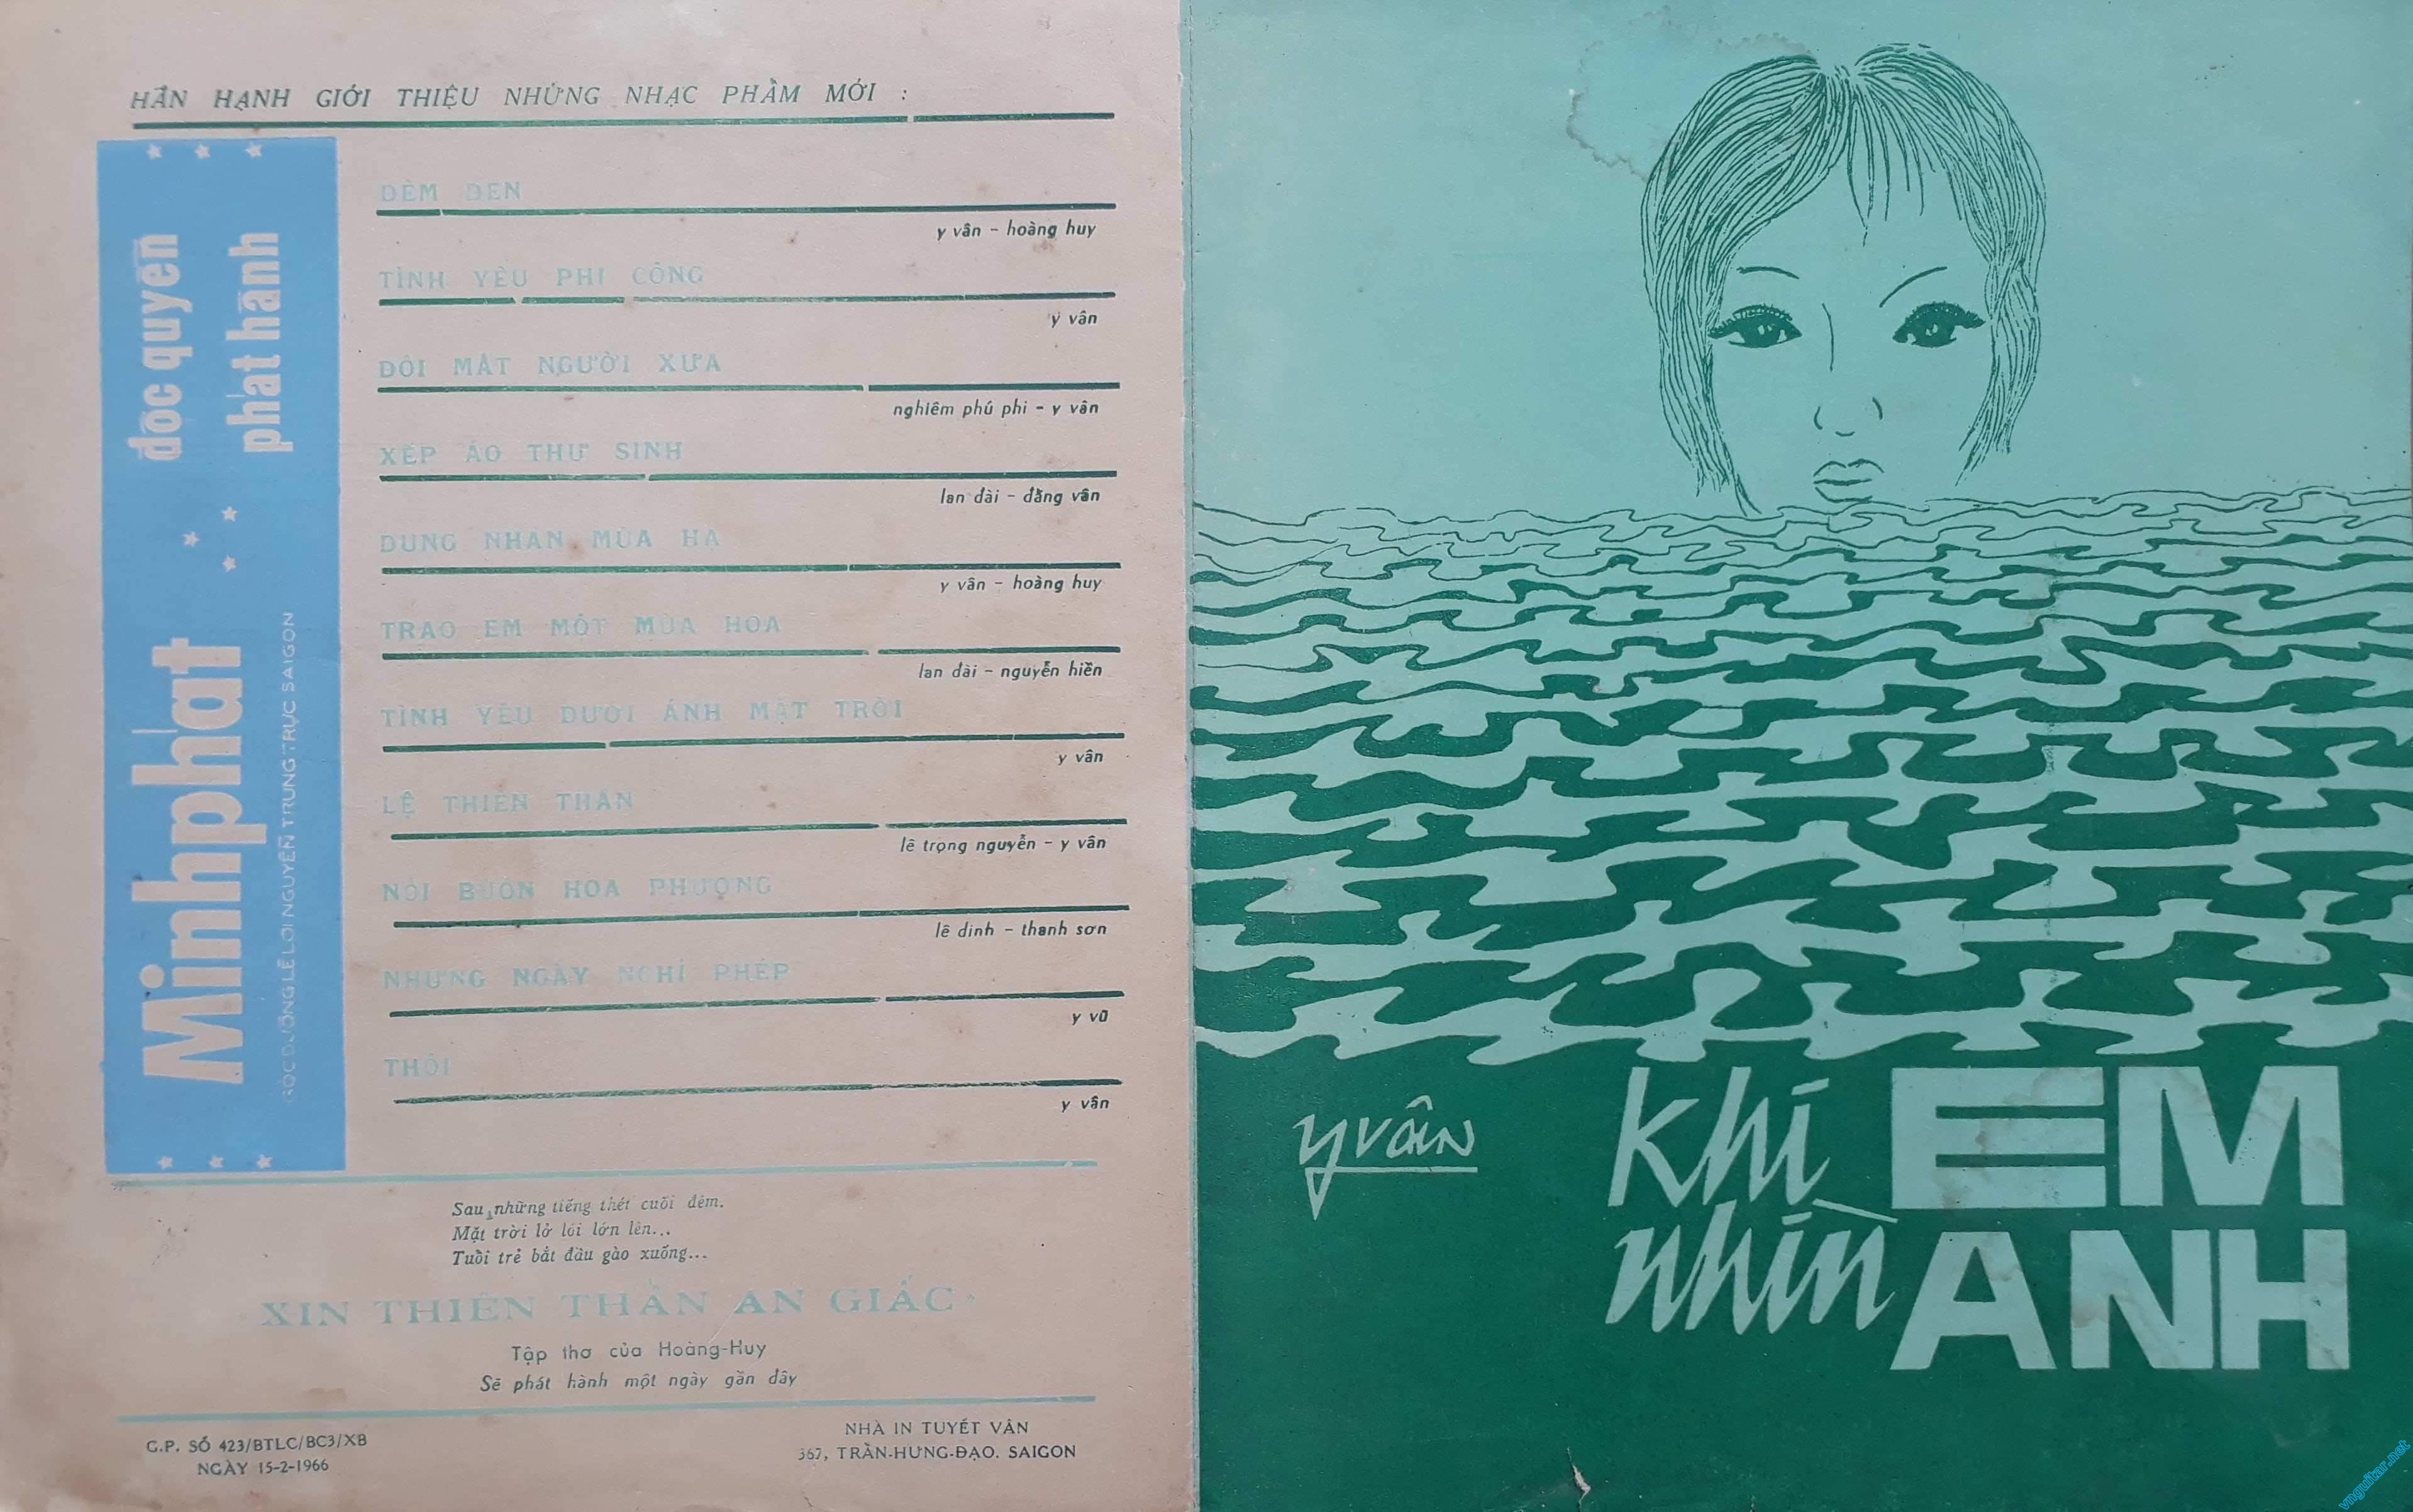 HÂN HẠNH GIỚI THIỆU NHỮNG NHẠC PHẨM MỚI :
độc quyền
phát hành
Minhphát
GÓC ĐƯỜNG LÊ LỢI NGUYỄN TRUNG TRỰC SAIGON
ĐÊM ĐEN
y vân - hoàng huy
TÌNH YÊU PHI CÔNG
y vân
ĐÔI MẮT NGƯỜI XƯA
nghiêm phú phi - y vân
XẾP ÁO THƯ SINH
lan đài - đăng vân
DUNG NHAN MÙA HẠ
y vân - hoàng huy
TRAO EM MỘT MÙA HOA
lan đài - nguyễn hiền
TÌNH YÊU DƯỚI ÁNH MẶT TRỜI
y vân
LỆ THIÊN THẦN
lê trọng nguyễn - y vân
NỖI BUỒN HOA PHƯỢNG
lê dinh - thanh sơn
NHỮNG NGÀY NGHỈ PHÉP
y vũ
THÔI
y vân
Sau những tiếng thét cuối đêm.
Mặt trời lở lói lớn lên...
Tuổi trẻ bắt đầu gào xuống...
XIN THIÊN THẦN AN GIẤC
Tập thơ của Hoàng-Huy
Sẽ phát hành một ngày gần đây
G.P. SỐ 423/BTLC/BC3/XB
NGÀY 15-2-1966
NHÀ IN TUYẾT VÂN
367, TRẦN-HƯNG-ĐẠO. SAIGON
y vân
khi EM
nhìn ANH
vnguitar.net